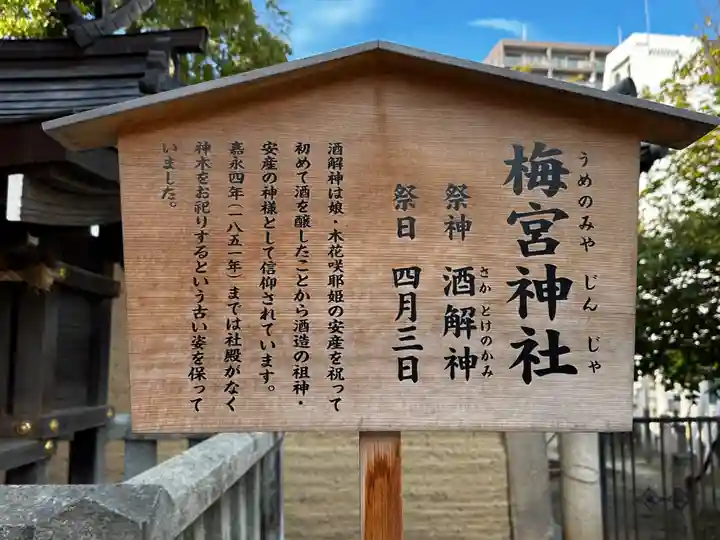 梅宮神社
うめのみや じんじゃ
祭神 酒解神
さかとけのかみ
祭日 四月三日
酒解神は娘・木花咲耶姫の安産を祝って
初めて酒を醸したことから酒造の祖神・
安産の神様として信仰されています。
嘉永四年（一八五一年）までは社殿がなく
神木をお祀りするという古い姿を保って
いました。